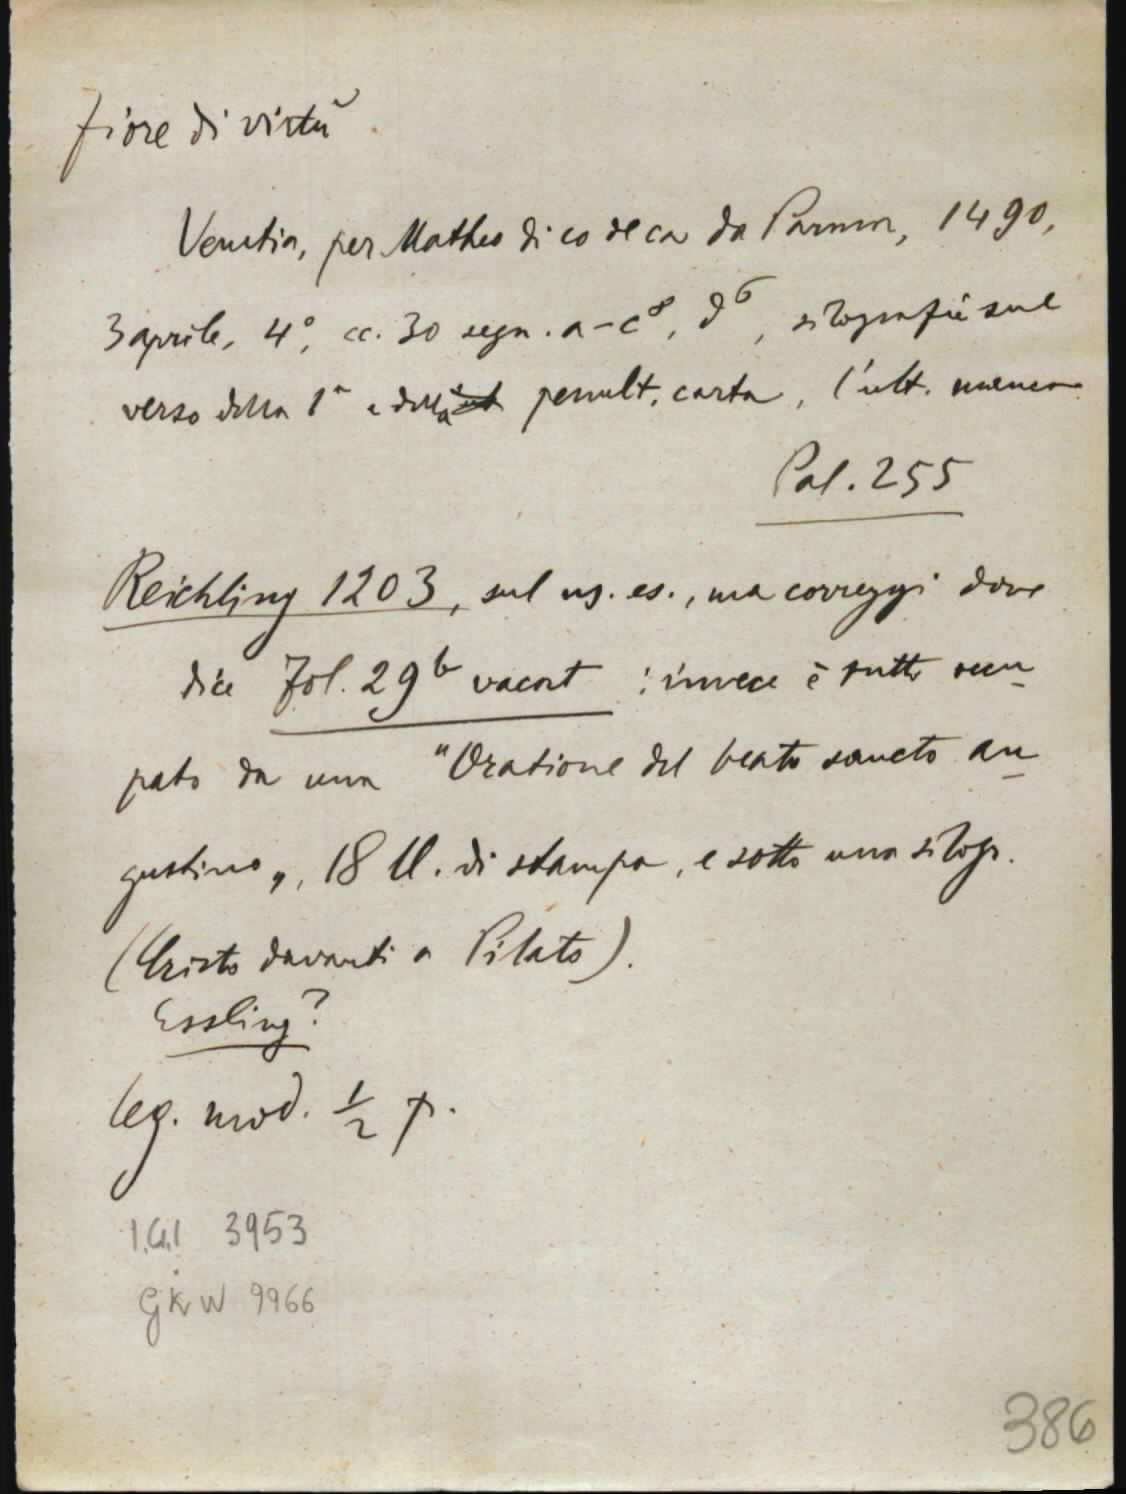 Fiore di virtù
Venetia, per Matheo di co de ca da Parma, 1490,
3 aprile, 4°, cc. 30 segn. a-c⁸, d⁶, silografie sul
verso della 1ª e della penult. carta, l'ult. manca
Pal. 255
Reichling 1203, sul ns. es., ma correggi dove
dice Fol. 29ᵇ vacat : invece è tutto occu-
pato da una "Oratione del beato sancto au-
gustino„, 18 ll. di stampa, e sotto una silogr.
(Cristo davanti a Pilato).
Essling?
leg. mod. ½ p.
I.G.I 3953
GKW 9966
386